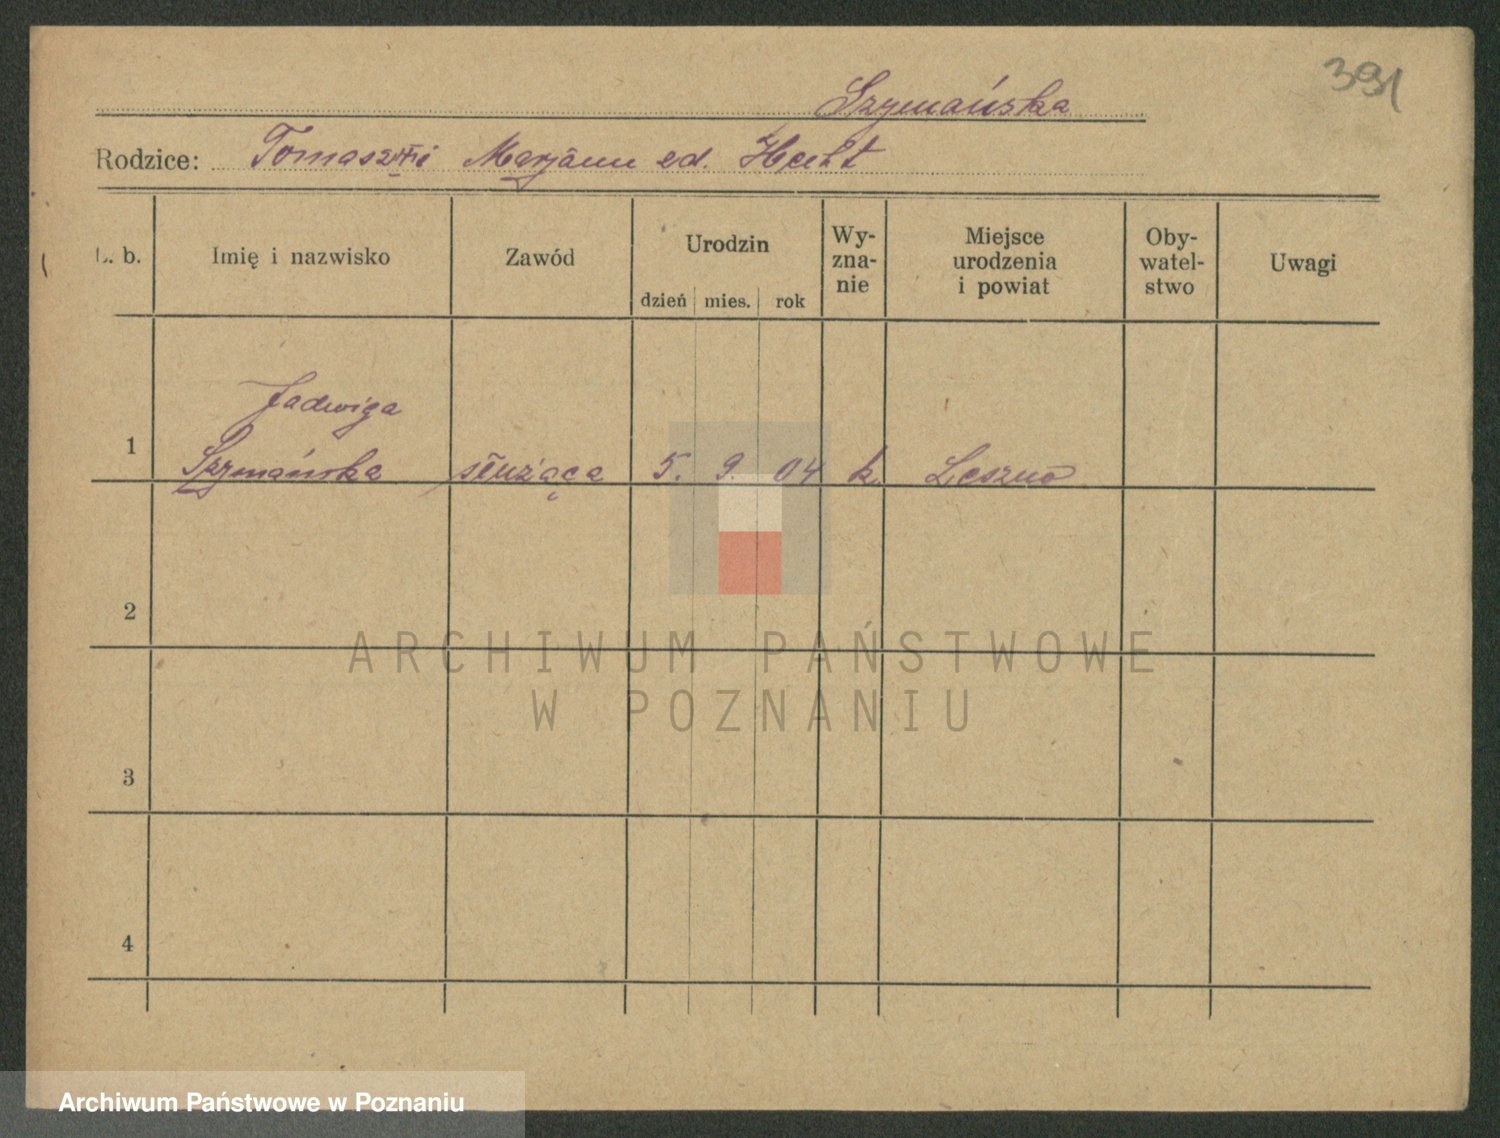 391
Szymańska
Rodzice: Tomasz i Marjanna zd. Hecht
L. b. Imię i nazwisko Zawód Urodzin dzień mies. rok Wy-zna-nie Miejsce urodzenia i powiat Oby-watel-stwo Uwagi
Jadwiga
1 Szymańska służąca 5. 9. 04 k. Leszno
2
ARCHIWUM PAŃSTWOWE
W POZNANIU
3
4
Archiwum Państwowe w Poznaniu